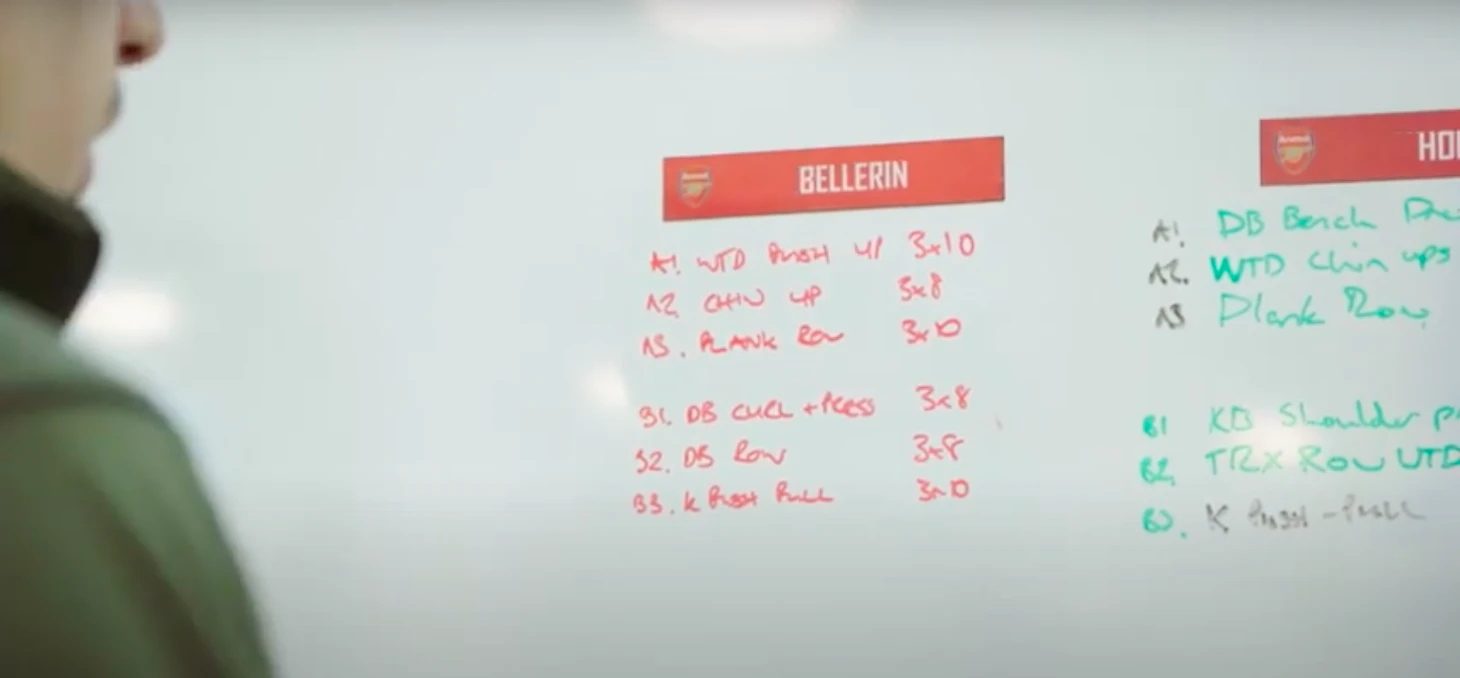 BELLERIN
A1. WTD PUSH UP 3x10
A2. CHIN UP 3x8
A3. PLANK ROW 3x10
B1. DB CURL + PRESS 3x8
B2. DB ROW 3x8
B3. K PUSH PULL 3x10
Arsenal
HO
A1. DB Bench
A2. WTD Chin ups
A3 Plank Row
B1 KB Shoulder P
B2. TRX ROW WTD
B3. K Push-Pull